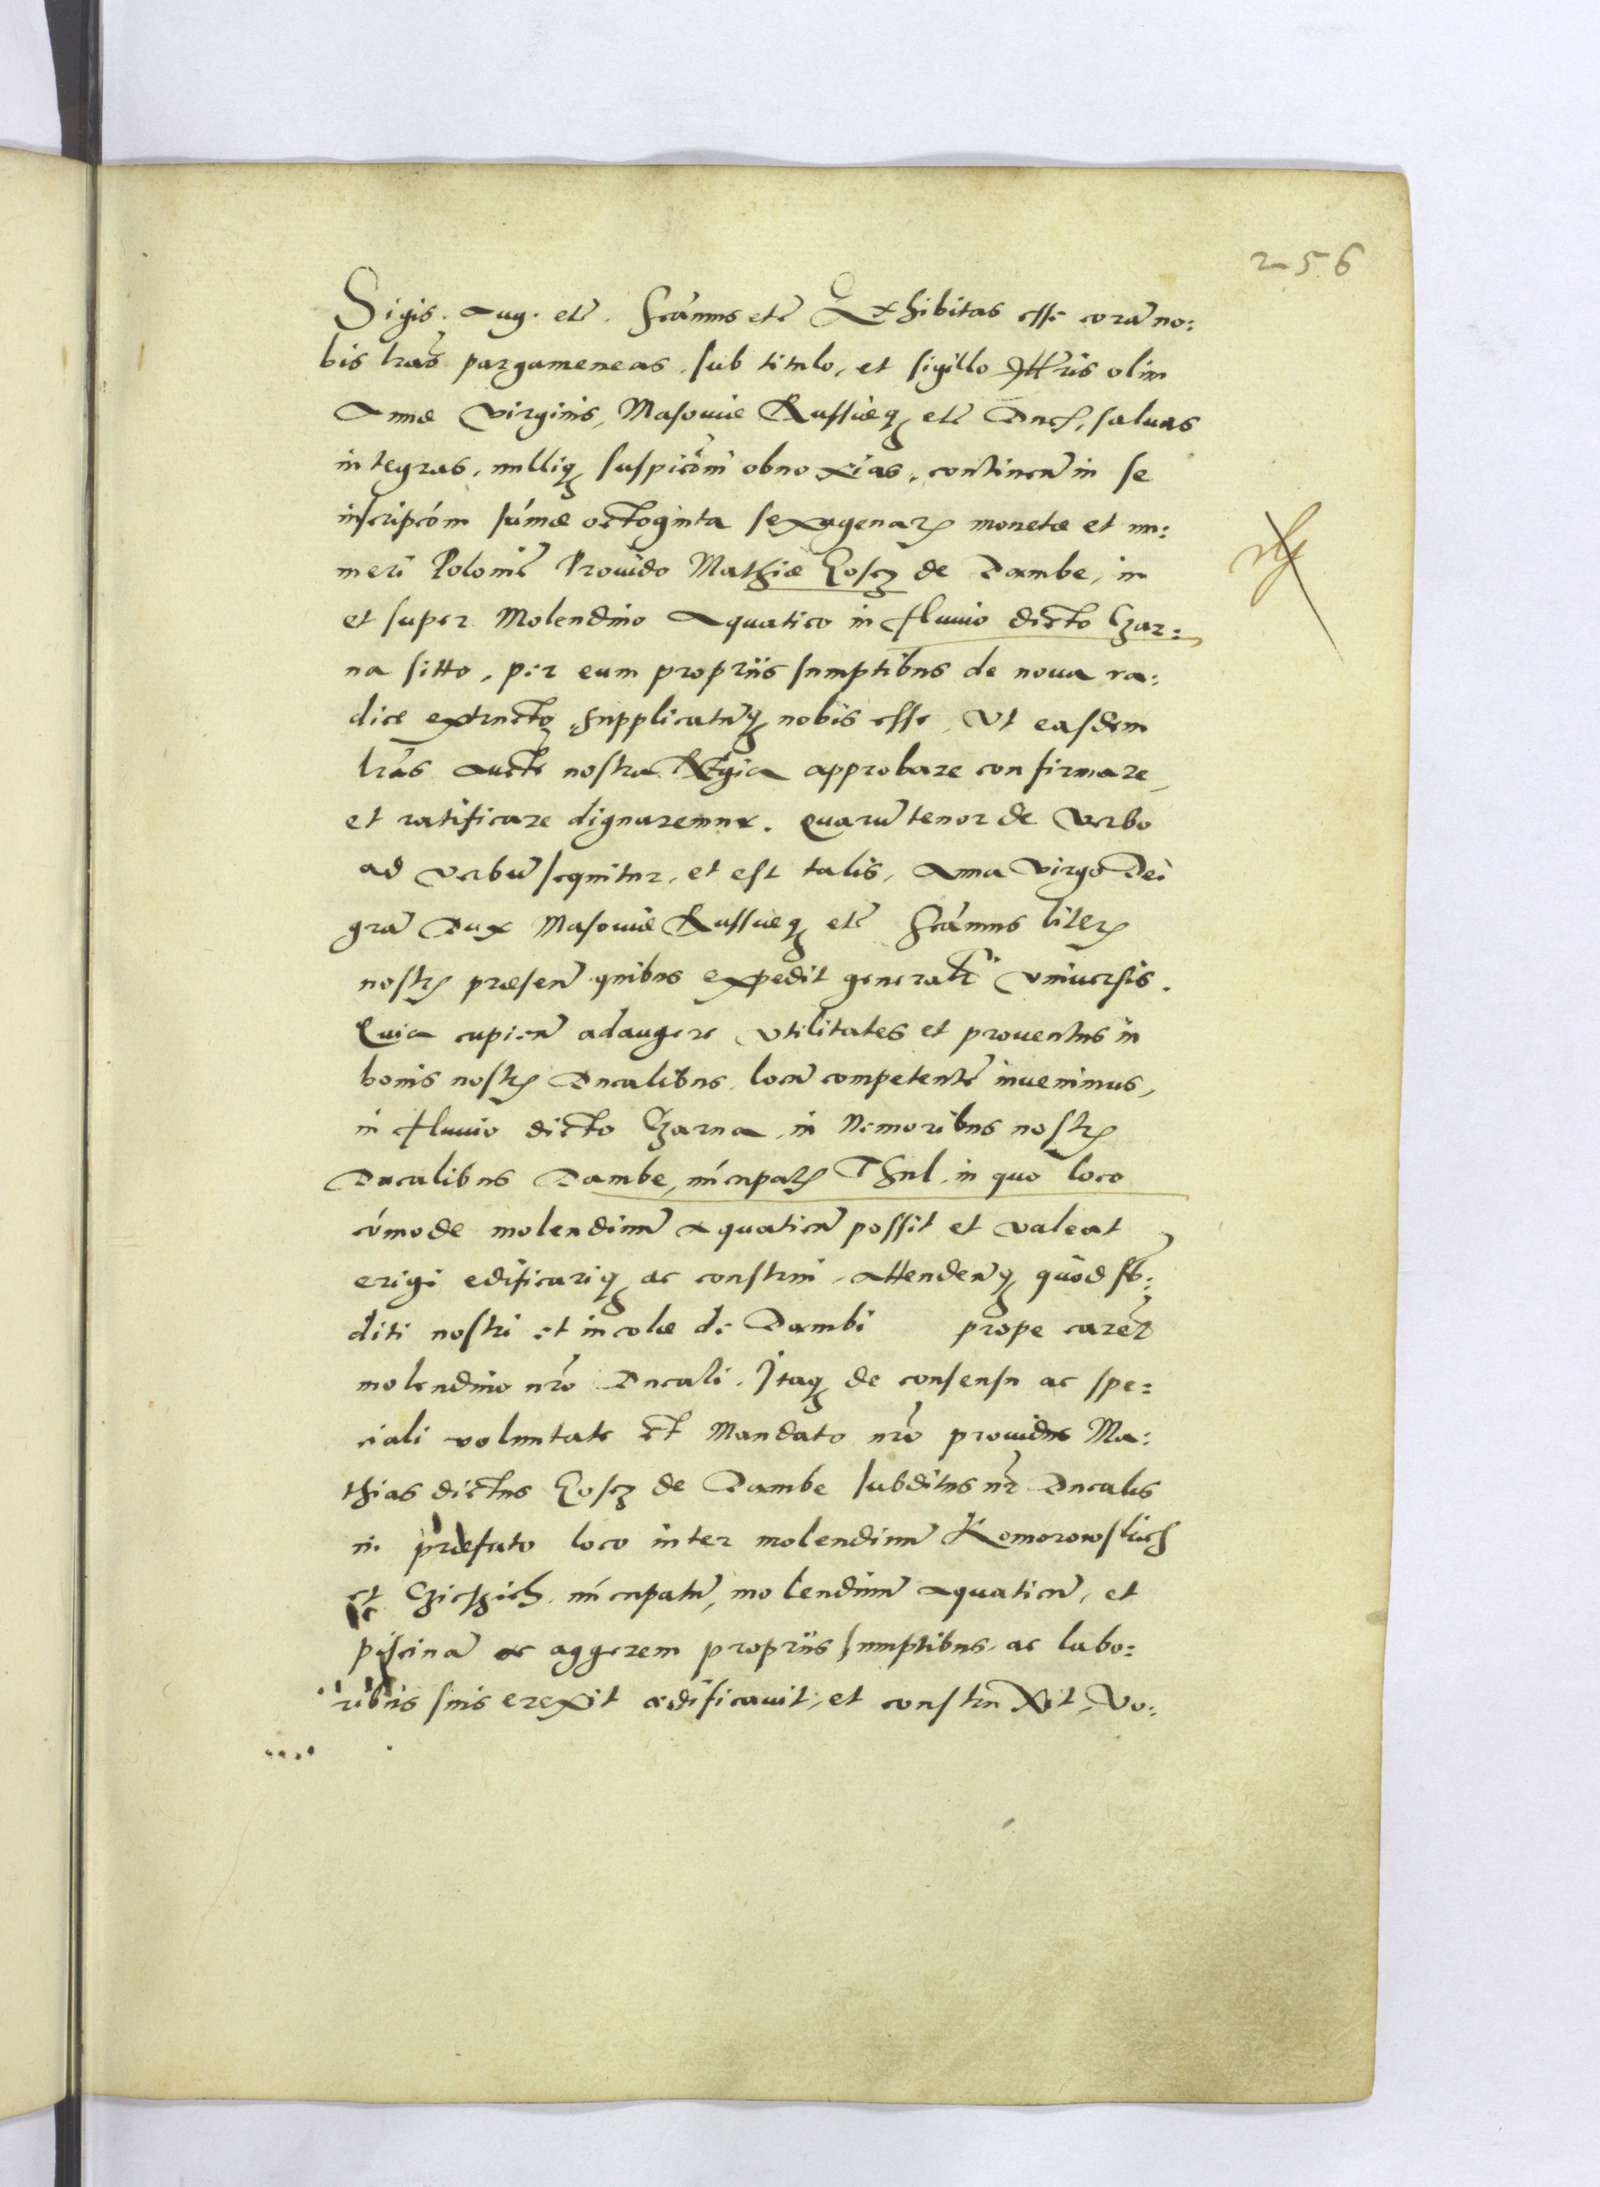 256
Sigis. Aug. etc̄. Scām̄us etc̄ Exhibitas esse corā no:
bis lrās pargameneas, sub titulo, et sigillo Illris olim
Annæ Virginis, Masouiæ Russiæq; etc̄ Duc̄, saluas
integras, nulliq; suspicōni obnoxias, continen̄ in se
inscripcōm sūmæ octoginta sexagenarꝝ monetæ et nu:
meri Polonic̄ Prouido Mathiæ Koscz de Dambe, in
et super Molendino Aquatico in fluuio dicto Czar:
na sitto, per eum propriis sumptibus de noua ra:
dice extructo, supplicatūq; nobis esse, Vt easdem
lrās aucte nostra Regia approbare confirmare,
et ratificare dignaremur. Quarū tenor de verbo
ad verbū sequitur, et est talis, Anna virgo Dei
grā Dux Masouiæ Russiæq; etc̄ Scām̄us literꝭ
nostrꝭ præsen̄ quibus expedit generalr̄ vniuersis.
Quia cupien̄ adaugere vtilitates et prouentus in
bonis nostrꝭ Ducalibus, locū competentē inuenimus,
in fluuio dicto Czarna, in Nemoribus nostrꝭ
Ducalibus Dambe, nūcupatꝭ Thul, in quo loco
cōmode molendinū aquaticū possit et valeat
erigi edificariq; ac construi, Attenden̄q; quod sb:
diti nostri et incolæ de Dambi prope carer̄
molendino nrō Ducali. Itaq; de consensu ac spe:
ciali voluntate et Mandato nrō prouidus Ma:
thias dictus Koscz de Dambe subditus nr̄ Ducalis
in præfato loco inter molendinū Komorowskich
et nūcupatū, molendinū aquaticū, et
piscinā ac aggerem propriis sumptibus, ac labo:
ribus suis erexit ædificauit, et construxit, Vo: